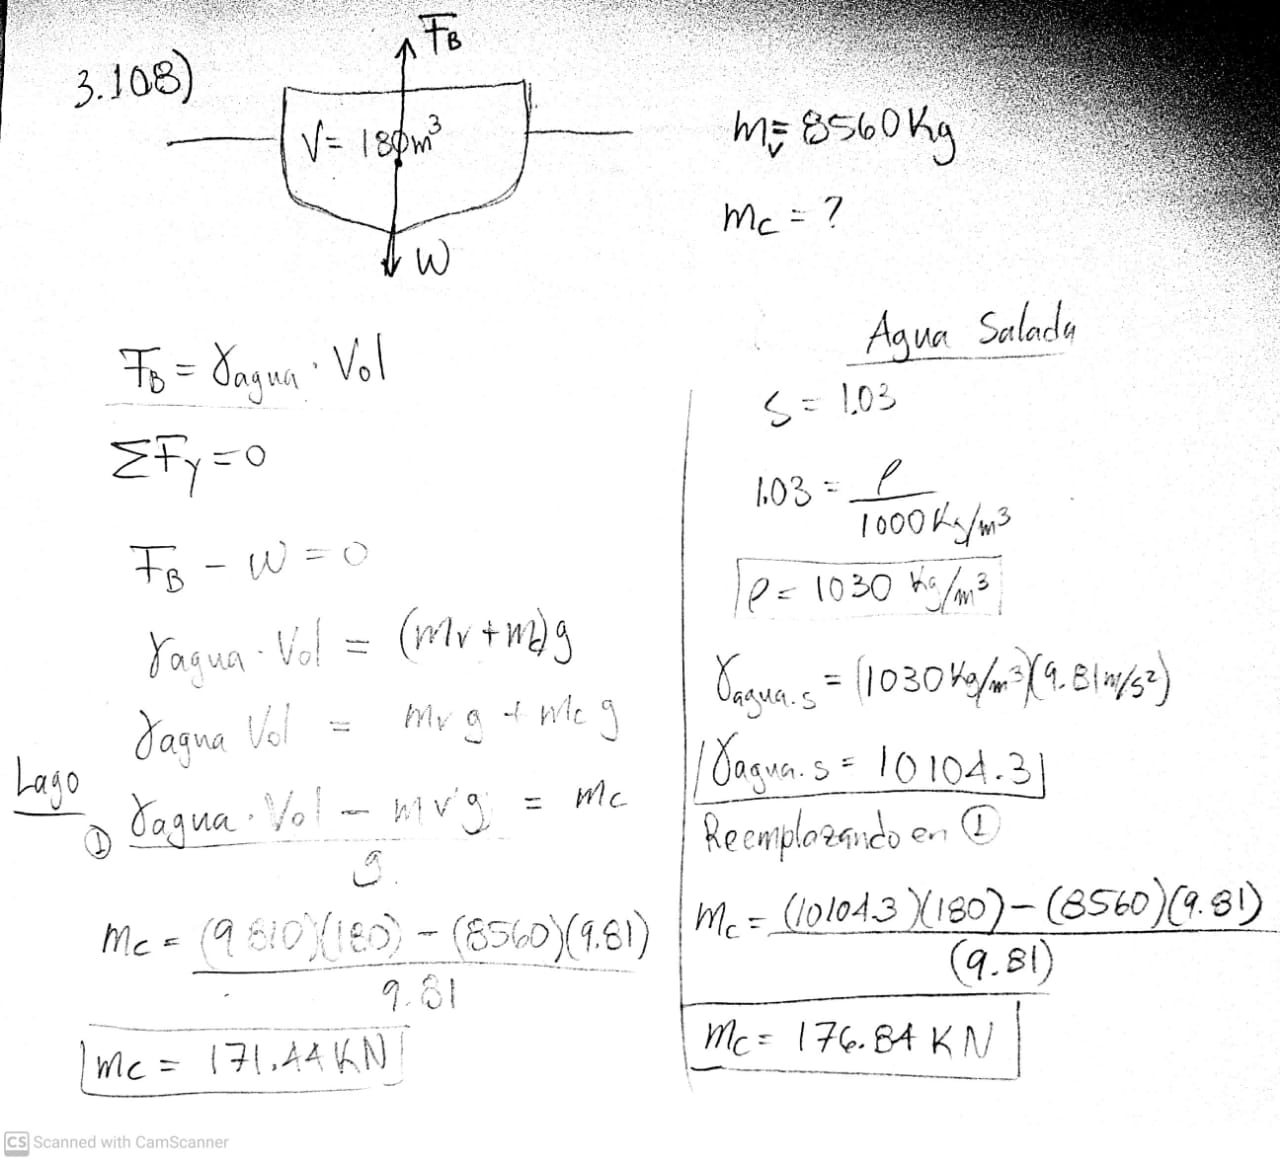 3.108)
F_B
V= 180m³
W
m_v= 8560Kg
m_c = ?
F_B = γagua · Vol
ΣF_y=0
F_B - W = 0
γagua · Vol = (mv + mc)g
γagua Vol = mv g + mc g
Lago
① γagua · Vol - mv·g = mc
g.
mc = (9810)(180) - (8560)(9.81)
9.81
mc = 171.44 KN
Agua Salada
S = 1.03
1.03 = ρ
1000 Kg/m³
ρ = 1030 Kg/m³
γagua.s = (1030 Kg/m³)(9.81m/s²)
γagua.s = 10104.3
Reemplazando en ①
mc = (10104.3)(180) - (8560)(9.81)
(9.81)
mc = 176.84 KN
CS Scanned with CamScanner